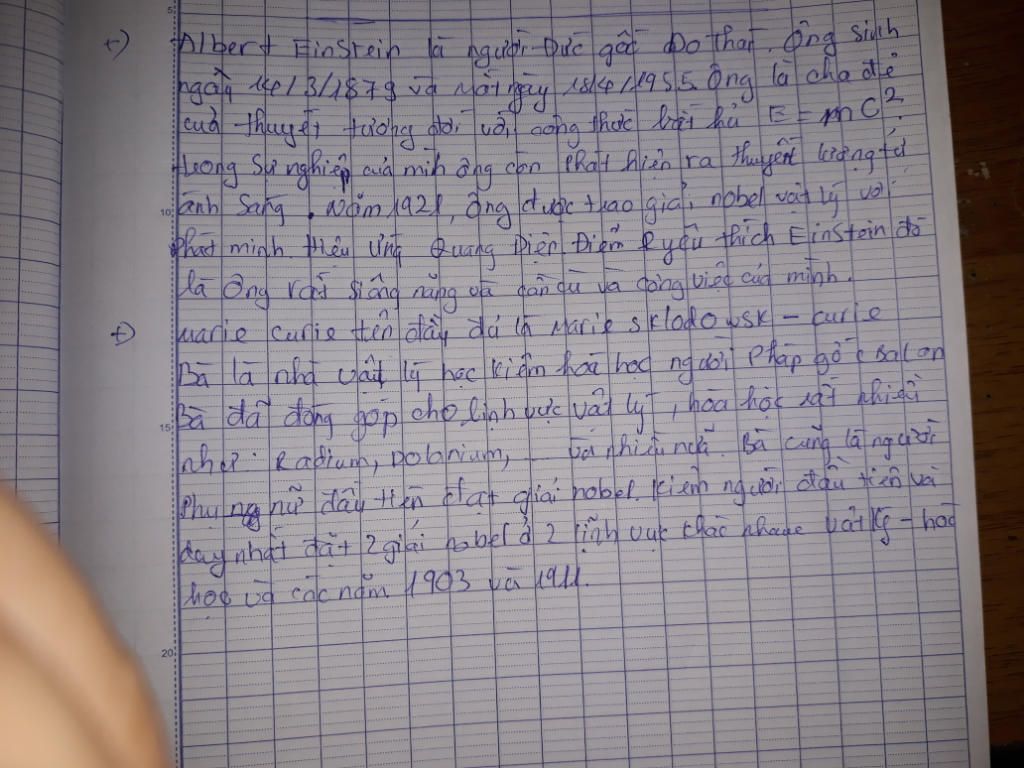 +) Albert Einstein là người Đức gốc Do thái. Ông sinh
ngày 14/3/1879 và mất ngày 18/4/1955. Ông là cha đẻ
của thuyết tương đối với công thức bất hủ E = mc².
trong sự nghiệp của mình ông còn phát hiện ra thuyết lượng tử
ánh sáng. Năm 1921, ông được trao giải nobel vật lý với
phát minh Hiệu ứng Quang Điện. Điểm e yêu thích Einstein đó
là Ông rất siêng năng và cần cù và công việc của mình.
+) Marie curie tên đầy đủ là Marie sklodowsk - curie
Bà là nhà vật lý học kiêm hoá học người Pháp gốc Ba lan
Bà đã đóng góp cho lĩnh vực vật lý, hóa học rất nhiều
như: Radium, polonium, ... và nhiều nữa. Bà cũng là người
Phụ nữ đầu tiên đạt giải nobel. kiêm người đầu tiên và
duy nhất đạt 2 giải nobel ở 2 lĩnh vực khác nhau vật lý - hoá
học và các năm 1903 và 1911.
5
10
15
20